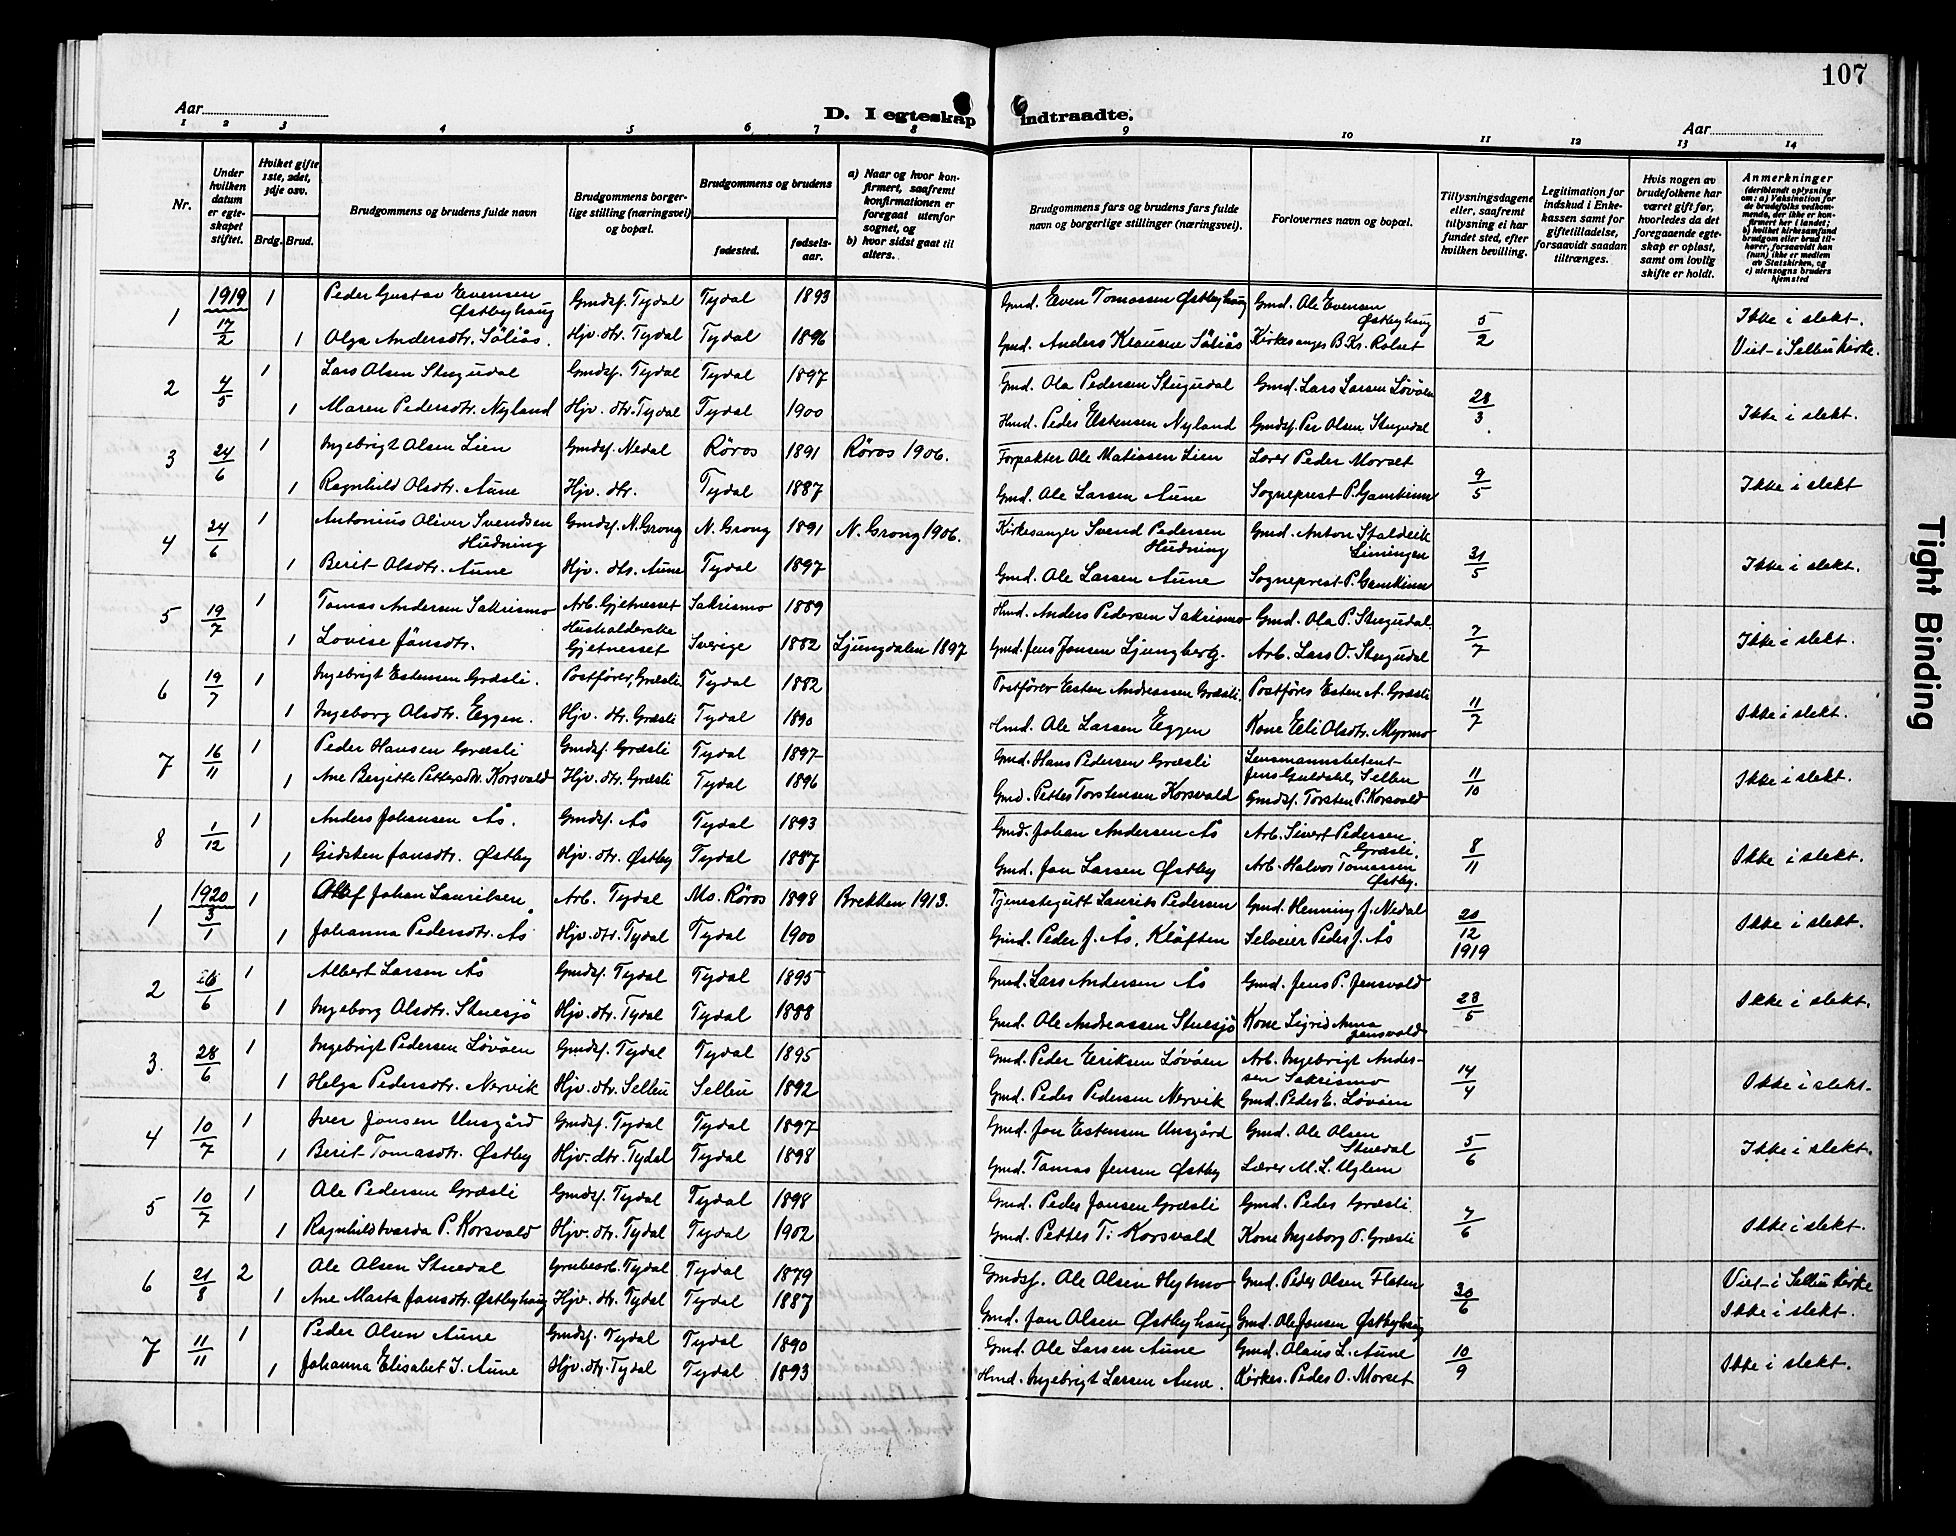 107
Aar
D. I egteskap indtraadte.
Aar
1 2 3 4 5 6 7 8 9 10 11 12 13 14
Nr.
Under hvilken datum er egteskapet stiftet.
Hvilket gifte 1ste, 2det, 3dje osv.
Brdg. Brud.
Brudgommens og brudens fulde navn
Brudgommens borgerlige stilling (næringsvei) og bopæl.
Brudgommens og brudens
fødested.
fødselsaar.
a) Naar og hvor konfirmert, saafremt konfirmationen er foregaat utenfor sognet, og b) hvor sidst gaat til alters.
Brudgommens fars og brudens fars fulde navn og borgerlige stillinger (næringsvei).
Forlovernes navn og bopæl.
Tillysningsdagene eller, saafremt tilysning ei har fundet sted, efter hvilken bevilling.
Legitimation for indskud i Enkekassen samt for giftetilladelse, forsaavidt saadan tiltrænges.
Hvis nogen av brudefolkene har været gift før, hvorledes da det foregaaende egteskap er opløst, samt om lovlig skifte er holdt.
Anmerkninger (deriblandt oplysning om: a) Vaksination for de brudefolks vedkommende, der ikke er konfirmert her i landet; b) hvilket kirkesamfund brudgom eller brud tilhører, forsaavidt han (hun) ikke er medlem av Statskirken, og c) utensogns bruders hjemsted
1 1919 17/2 1 Peder Gustav Evensen Østbyhaug Gmdsf. Tydal Tydal 1893 Gmd. Even Tomassen Østbyhaug Gmd. Ole Evensen Østbyhaug 5/2 Ikke i slekt.
1 Olga Andersdtr. Søliås. Hjv. dtr. Tydal Tydal 1896 Gmd. Anders Klausen Søliås Kirkesanger B. Ks. Rolset Viet i Selbu kirke.
2 4/5 1 Lars Olsen Stugudal Gmdsf. Tydal Tydal 1897 Gmd. Ola Pedersen Stugudal Gmd. Lars Larsen Løvøen 28/3
1 Maren Pedersdtr. Nyland Hjv. dtr. Tydal Tydal 1900 Hmd. Peder Estensen Nyland Gmdsf. Per Olsen Stugudal Ikke i slekt.
3 24/6 1 Ingebrigt Olsen Lien Gmdsf. Nedal Röros 1891 Röros 1906. Forpakter Ole Matiasen Lien Lærer Peder Morset 9/5
1 Ragnhild Olsdtr. Aune Hjv. dtr. Tydal 1887 Gmd. Ole Larsen Aune Sogneprest P. Gamkinn Ikke i slekt
4 24/6 1 Antonius Oliver Svendsen Hudning Gmdsf. N. Grong N. Grong 1891 N. Grong 1906. Kirkesanger Svend Pedersen Hudning Gmd. Anton Staldvik Limingen 31/5
1 Berit Olsdtr. Aune Hjv. dtr. Aune Tydal 1897 Gmd. Ole Larsen Aune Sogneprest P. Gamkinn Ikke i slekt.
5 19/7 1 Tomas Andersen Sakrismo Arb. Gjetnesset Sakrismo 1889 Hmd. Anders Pedersen Sakrismo Gmd. Ola P. Stugudal. 7/7
1 Lovise Jönsdtr. Husholderske Gjetnesset Sverige 1882 Ljungdalen 1897 Gmd. Jens Jonsen Ljungberg. Arb. Lars O. Stugudal Ikke i slekt.
6 19/7 1 Ingebrigt Estensen Græsli. Postfører, Græsli Tydal 1882 Postfører Esten Andreassen Græsli. Postfører Esten A. Græsli 11/7
1 Ingeborg Olsdtr. Eggen. Hjv. dtr. Græsli Tydal 1890 Hmd. Ole Larsen Eggen Kone Eli Olsdtr. Myrmo Ikke i slekt.
7 16/11 1 Peder Hansen Græsli Gmdsf. Græsli Tydal 1897 Gmd. Hans Pedersen Græsli Lensmannsbetent Jens Guldseth, Selbu 11/10
1 Ane Birgitte Pettersdtr. Korsvald Hjv. dtr. Græsli Tydal 1896 Gmd. Petter Torstensen Korsvald Gmdsf. Torsten P. Korsvald Ikke i slekt.
8 1/12 1 Anders Johansen Ås. Gmdsf. Ås Tydal 1893 Gmd. Johan Andersen Ås Arb. Sivert Pedersen Græsli. 8/11
1 Gidsken Jonsdtr. Østby Hjv. dtr. Østby Tydal 1887 Gmd. Jon Larsen Østby Arb. Halvor Tomassen Østby. Ikke i slekt.
1 1920 3/1 1 Johan Lauritsen Arb. Tydal Ms. Röros 1898 Brekken 1913. Tjenestegutt Laurits Pedersen Gmd. Henning J. Nedal 20/12 1919
1 Johanna Pedersdtr. Ås Hjv. dtr. Tydal Tydal 1900 Gmd. Peder J. Ås, Kløften Selveier Peder J. Ås Ikke i slekt.
2 /6 1 Albert Larsen Ås Gmdsf. Tydal Tydal 1895 Gmd. Lars Andersen Ås Gmd. Jens P. Jensvold 28/5
1 Ingeborg Olsdtr. Stuesjö Hjv. dtr. Tydal Tydal 1888 Gmd. Ole Andreassen Stuesjö Kone Sigrid Anna Jensvold Ikke i slekt.
3. 28/6 1 Ingebrigt Pedersen Løvøen Gmdsf. Tydal Tydal 1895 Gmd. Peder Eriksen Løvøen Arb. Ingebrigt Andersen Sakrismo 14/4
1 Helga Pedersdtr. Nervik Hjv. dtr. Selbu Selbu 1892 Gmd. Peder Pedersen Nervik Gmd. Peder E. Løvøen Ikke i slekt.
4 10/7 1 Iver Jonsen Unsgård Gmdsf. Tydal Tydal 1897 Gmd. Jon Estensen Unsgård Gmd. Ole Olsen Stuedal 5/6
1 Berit Tomasdtr. Østby Hjv. dtr. Tydal Tydal 1898 Gmd. Tomas Jensen Østby Lærer M. L. Uglem Ikke i slekt.
5 10/7 1 Ole Pedersen Græsli Gmdsf. Tydal Tydal 1898 Gmd. Peder Jonsen Græsli Gmd. Peder Græsli. 7/6
1 Ragnhild P. Korsvald Hjv. dtr. Tydal Tydal 1902 Gmd. Petter T. Korsvald Kone Ingeborg O. Græsli Ikke i slekt.
6 21/8 2 Ole Olsen Stuedal Grubearb. Tydal Tydal 1879 Gmdsf. Ole Olsen Hytmo Gmd. Peder Olsen Flaten 30/6 Viet i Selbu kirke
1 Ane Marta Jonsdtr. Østbyhaug Hjv. dtr. Tydal Tydal 1887 Gmd. Jon Olsen Østbyhaug Gmd. Ole Jonsen Østbyhaug Ikke i slekt.
7 11/11 1 Peder Olsen Aune Gmdsf. Tydal Tydal 1890 Gmd. Ole Larsen Aune Gmd. Olaus L. Aune 10/9
1 Johanna Elisabet I. Aune Hjv. dtr. Tydal Tydal 1893 Hmd. Ingebrigt Larsen Aune. Kirkes. Peder O. Morset Ikke i slekt.
Tight Binding